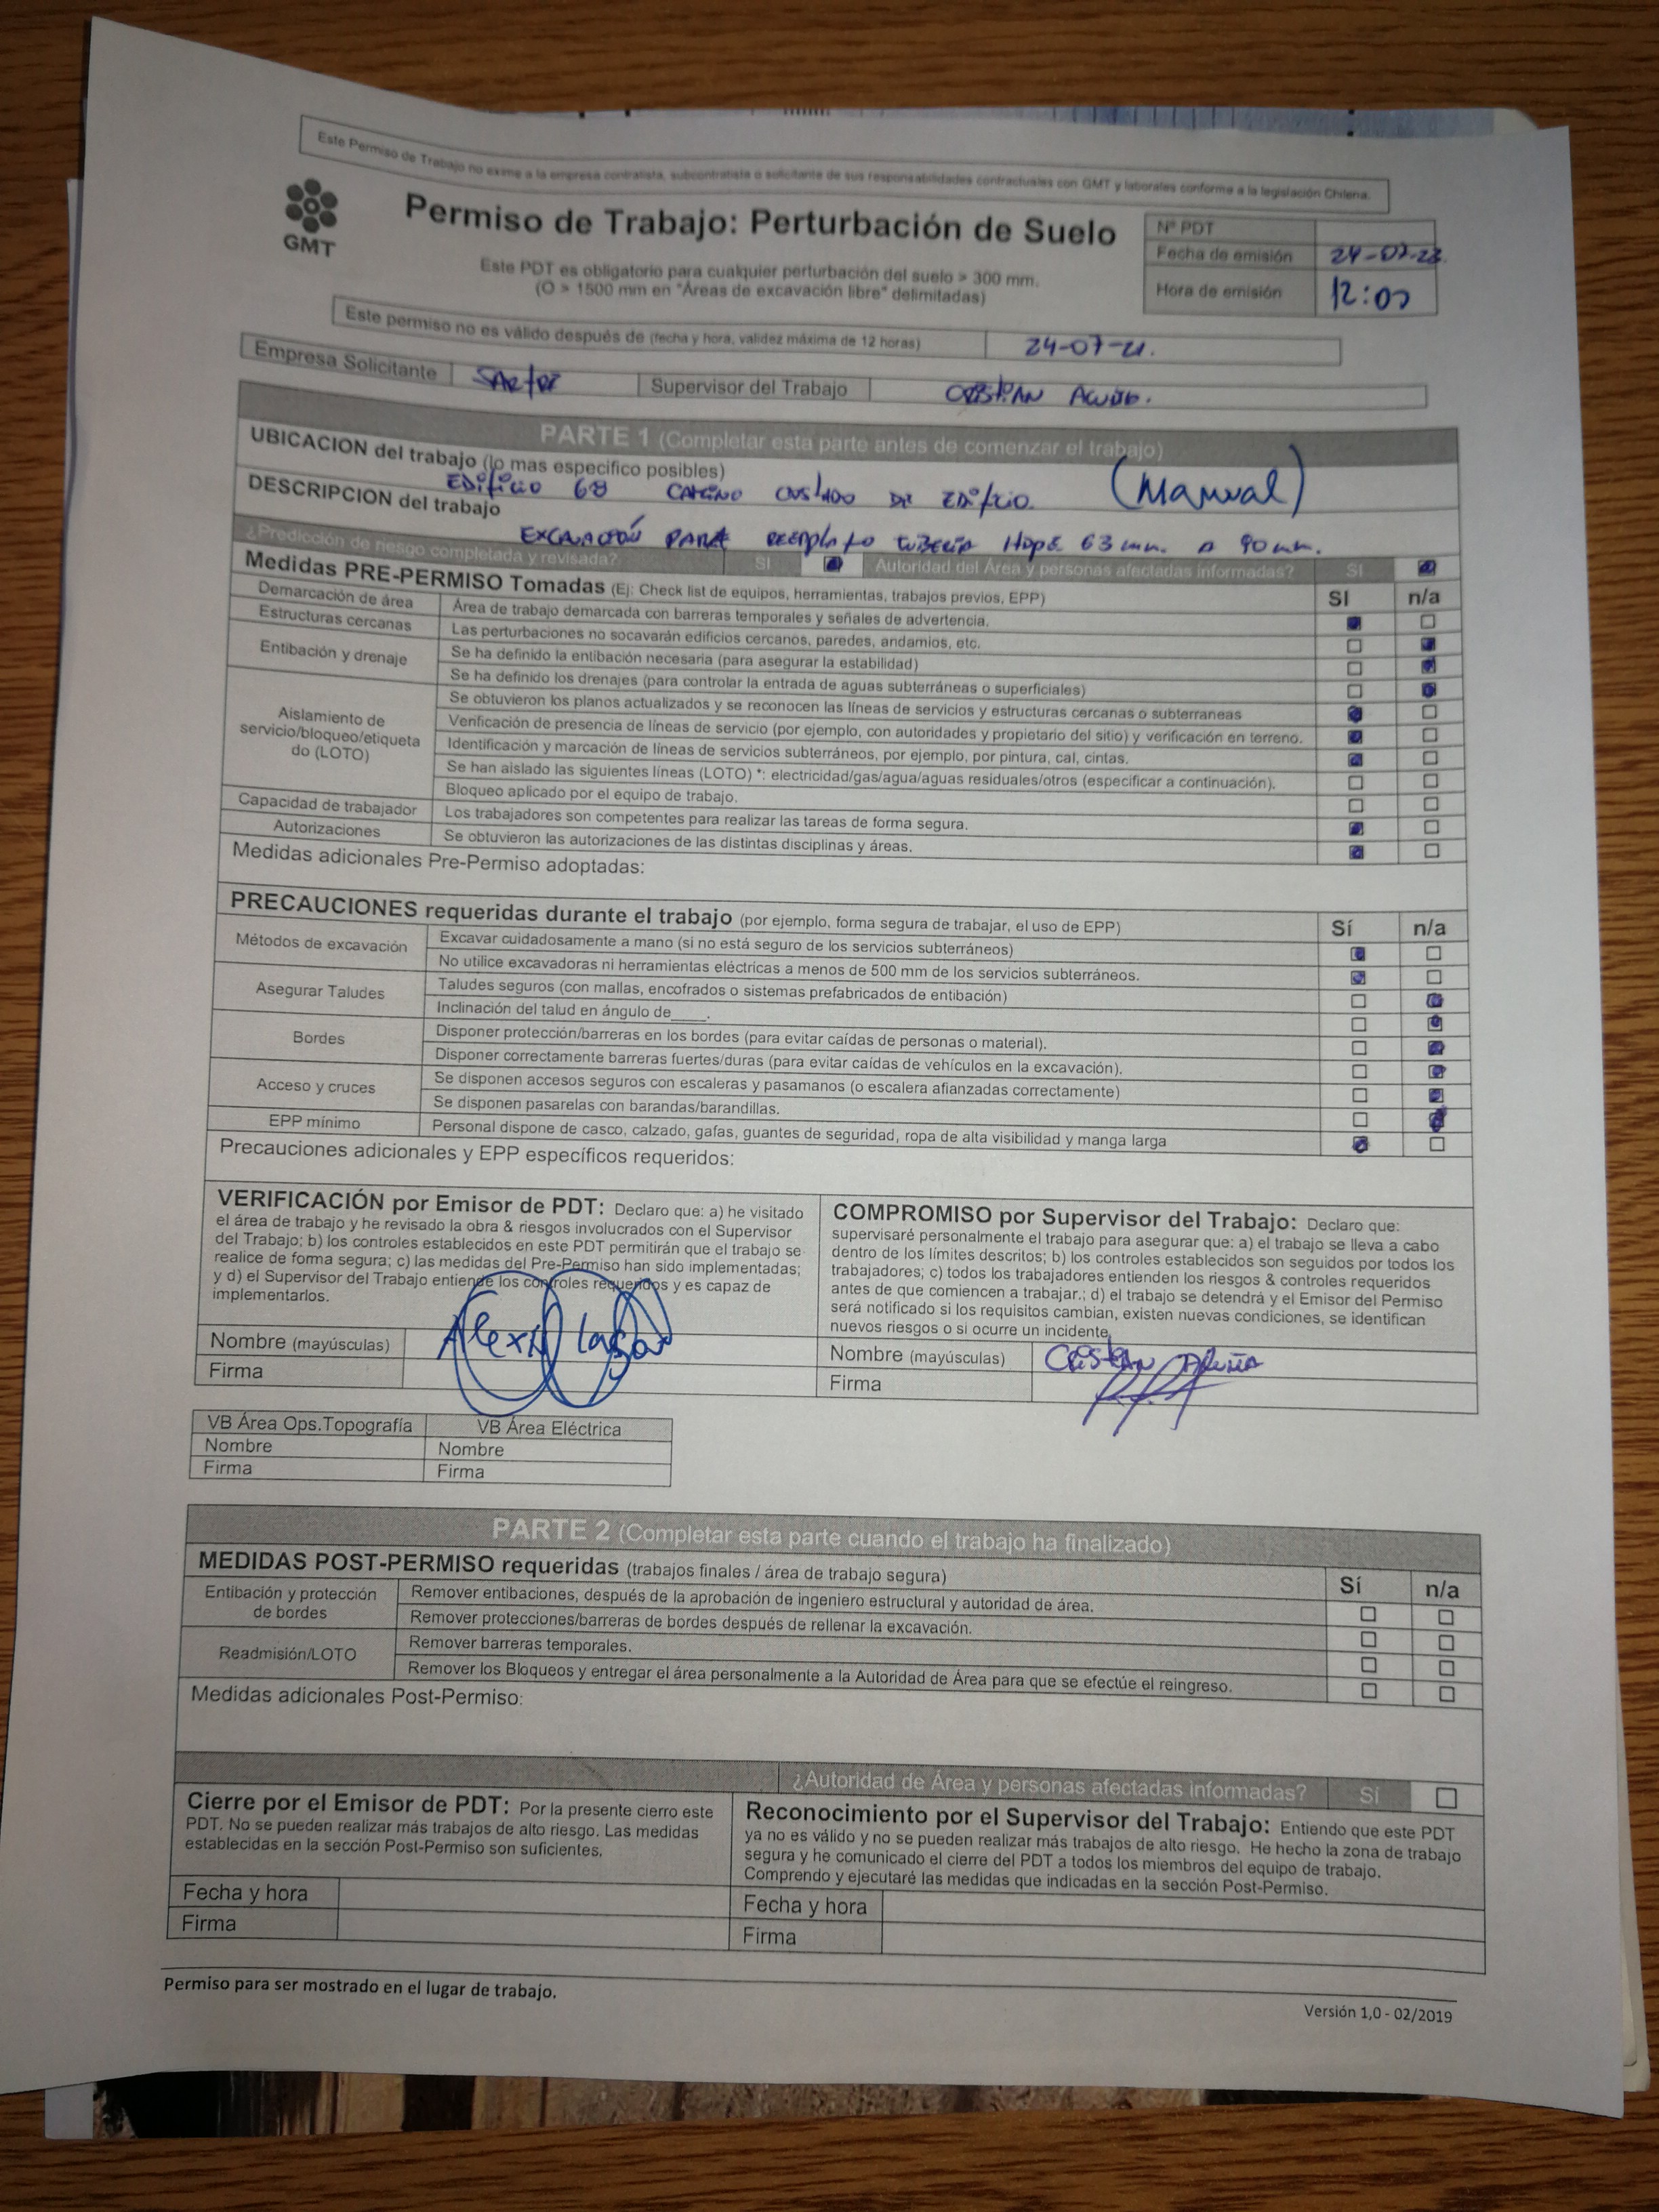 Este Permiso de Trabajo no exime a la empresa contratista, subcontratista o solicitante de sus responsabilidades contractuales con GMT y laborales conforme a la legislación Chilena.
GMT
Permiso de Trabajo: Perturbación de Suelo
Este PDT es obligatorio para cualquier perturbación del suelo > 300 mm.
(O > 1500 mm en "Áreas de excavación libre" delimitadas)
Nº PDT
Fecha de emisión 24-07-23.
Hora de emisión 12:00
Este permiso no es válido después de (fecha y hora, validez máxima de 12 horas) 24-07-
Empresa Solicitante Supervisor del Trabajo CRISTIAN ACUÑA.
PARTE 1 (Completar esta parte antes de comenzar el trabajo)
UBICACION del trabajo (lo mas especifico posibles)
EDIFICIO 68 CAMINO DE EDIFICIO. (Manual)
DESCRIPCION del trabajo
EXCAVACIÓN PARA REEMPLAZO TUBERIA HDPE 63 mm. A 90 mm.
¿Predicción de riesgo completada y revisada? SI Autoridad del Área y personas afectadas informadas? SI
Medidas PRE-PERMISO Tomadas (Ej: Check list de equipos, herramientas, trabajos previos, EPP) SI n/a
Demarcación de área Área de trabajo demarcada con barreras temporales y señales de advertencia.
Estructuras cercanas Las perturbaciones no socavarán edificios cercanos, paredes, andamios, etc.
Entibación y drenaje Se ha definido la entibación necesaria (para asegurar la estabilidad)
Se ha definido los drenajes (para controlar la entrada de aguas subterráneas o superficiales)
Aislamiento de servicio/bloqueo/etiqueta do (LOTO) Se obtuvieron los planos actualizados y se reconocen las líneas de servicios y estructuras cercanas o subterraneas
Verificación de presencia de líneas de servicio (por ejemplo, con autoridades y propietario del sitio) y verificación en terreno.
Identificación y marcación de líneas de servicios subterráneos, por ejemplo, por pintura, cal, cintas.
Se han aislado las siguientes líneas (LOTO) *: electricidad/gas/agua/aguas residuales/otros (especificar a continuación).
Bloqueo aplicado por el equipo de trabajo.
Capacidad de trabajador Los trabajadores son competentes para realizar las tareas de forma segura.
Autorizaciones Se obtuvieron las autorizaciones de las distintas disciplinas y áreas.
Medidas adicionales Pre-Permiso adoptadas:
PRECAUCIONES requeridas durante el trabajo (por ejemplo, forma segura de trabajar, el uso de EPP) Sí n/a
Métodos de excavación Excavar cuidadosamente a mano (si no está seguro de los servicios subterráneos)
No utilice excavadoras ni herramientas eléctricas a menos de 500 mm de los servicios subterráneos.
Asegurar Taludes Taludes seguros (con mallas, encofrados o sistemas prefabricados de entibación)
Inclinación del talud en ángulo de____.
Bordes Disponer protección/barreras en los bordes (para evitar caídas de personas o material).
Disponer correctamente barreras fuertes/duras (para evitar caídas de vehículos en la excavación).
Acceso y cruces Se disponen accesos seguros con escaleras y pasamanos (o escalera afianzadas correctamente)
Se disponen pasarelas con barandas/barandillas.
EPP mínimo Personal dispone de casco, calzado, gafas, guantes de seguridad, ropa de alta visibilidad y manga larga
Precauciones adicionales y EPP específicos requeridos:
VERIFICACIÓN por Emisor de PDT: Declaro que: a) he visitado
el área de trabajo y he revisado la obra & riesgos involucrados con el Supervisor
del Trabajo; b) los controles establecidos en este PDT permitirán que el trabajo se
realice de forma segura; c) las medidas del Pre-Permiso han sido implementadas;
y d) el Supervisor del Trabajo entiende los controles requeridos y es capaz de
implementarlos.
Nombre (mayúsculas)
Firma
COMPROMISO por Supervisor del Trabajo: Declaro que:
supervisaré personalmente el trabajo para asegurar que: a) el trabajo se lleva a cabo
dentro de los límites descritos; b) los controles establecidos son seguidos por todos los
trabajadores; c) todos los trabajadores entienden los riesgos & controles requeridos
antes de que comiencen a trabajar.; d) el trabajo se detendrá y el Emisor del Permiso
será notificado si los requisitos cambian, existen nuevas condiciones, se identifican
nuevos riesgos o si ocurre un incidente.
Nombre (mayúsculas) CRISTIAN ACUÑA
Firma
VB Área Ops.Topografía VB Área Eléctrica
Nombre Nombre
Firma Firma
PARTE 2 (Completar esta parte cuando el trabajo ha finalizado)
MEDIDAS POST-PERMISO requeridas (trabajos finales / área de trabajo segura) Sí n/a
Entibación y protección de bordes Remover entibaciones, después de la aprobación de ingeniero estructural y autoridad de área.
Remover protecciones/barreras de bordes después de rellenar la excavación.
Readmisión/LOTO Remover barreras temporales.
Remover los Bloqueos y entregar el área personalmente a la Autoridad de Área para que se efectúe el reingreso.
Medidas adicionales Post-Permiso:
¿Autoridad de Área y personas afectadas informadas? Sí
Cierre por el Emisor de PDT: Por la presente cierro este
PDT. No se pueden realizar más trabajos de alto riesgo. Las medidas
establecidas en la sección Post-Permiso son suficientes.
Fecha y hora
Firma
Reconocimiento por el Supervisor del Trabajo: Entiendo que este PDT
ya no es válido y no se pueden realizar más trabajos de alto riesgo. He hecho la zona de trabajo
segura y he comunicado el cierre del PDT a todos los miembros del equipo de trabajo.
Comprendo y ejecutaré las medidas que indicadas en la sección Post-Permiso.
Fecha y hora
Firma
Permiso para ser mostrado en el lugar de trabajo.
Versión 1,0 - 02/2019